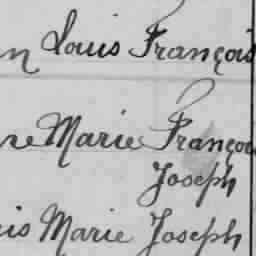 n Louis François
re Marie Françoi
Joseph
is Marie Joseph